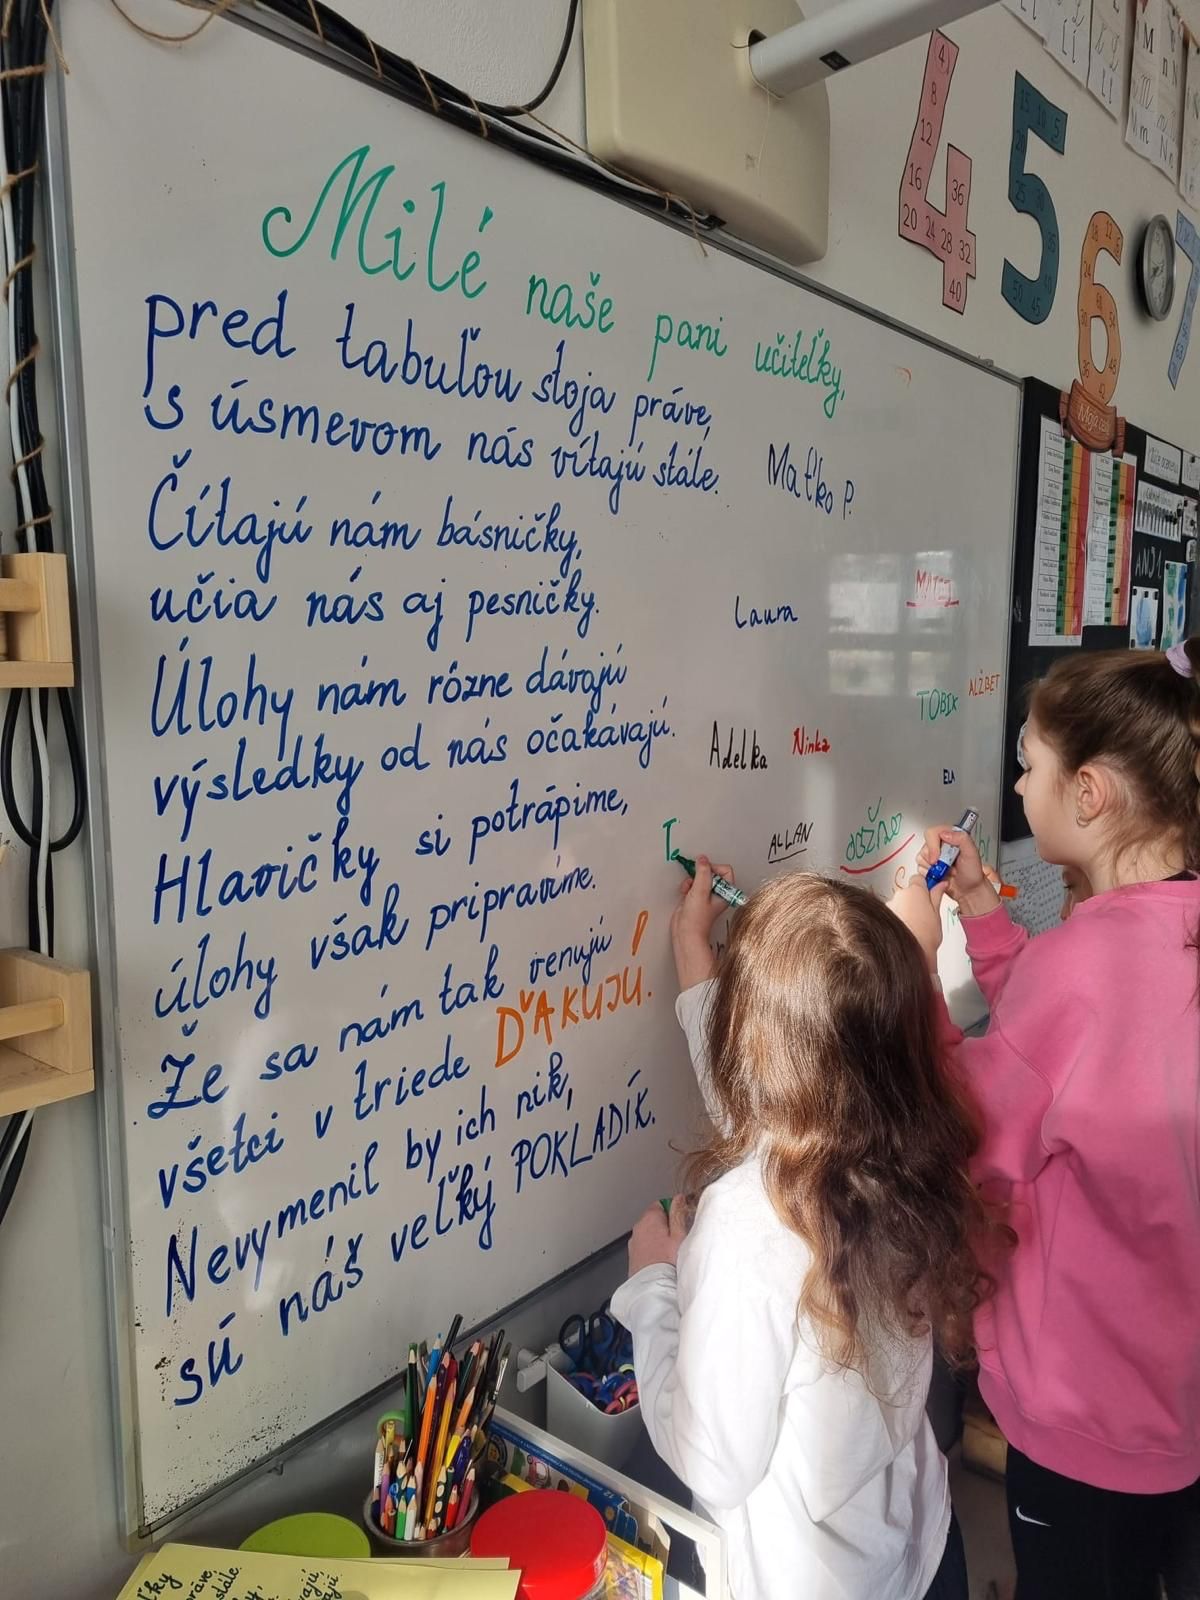 Milé naše pani učiteľky,
pred tabuľou stoja práve,
s úsmevom nás vítajú stále.
Čítajú nám básničky,
učia nás aj pesničky.
Úlohy nám rôzne dávajú
výsledky od nás očakávajú.
Hlavičky si potrápime,
úlohy však pripravíme.
Že sa nám tak venujú
všetci v triede ĎAKUJÚ.
Nevymenil by ich nik,
sú náš veľký POKLADÍK.
Maťko P.
MATEJ
Laura
TOBIX
ALŽBET
Adelka
Ninka
ELA
ALLAN
4
8
12
16
20 24 28 32
36
40